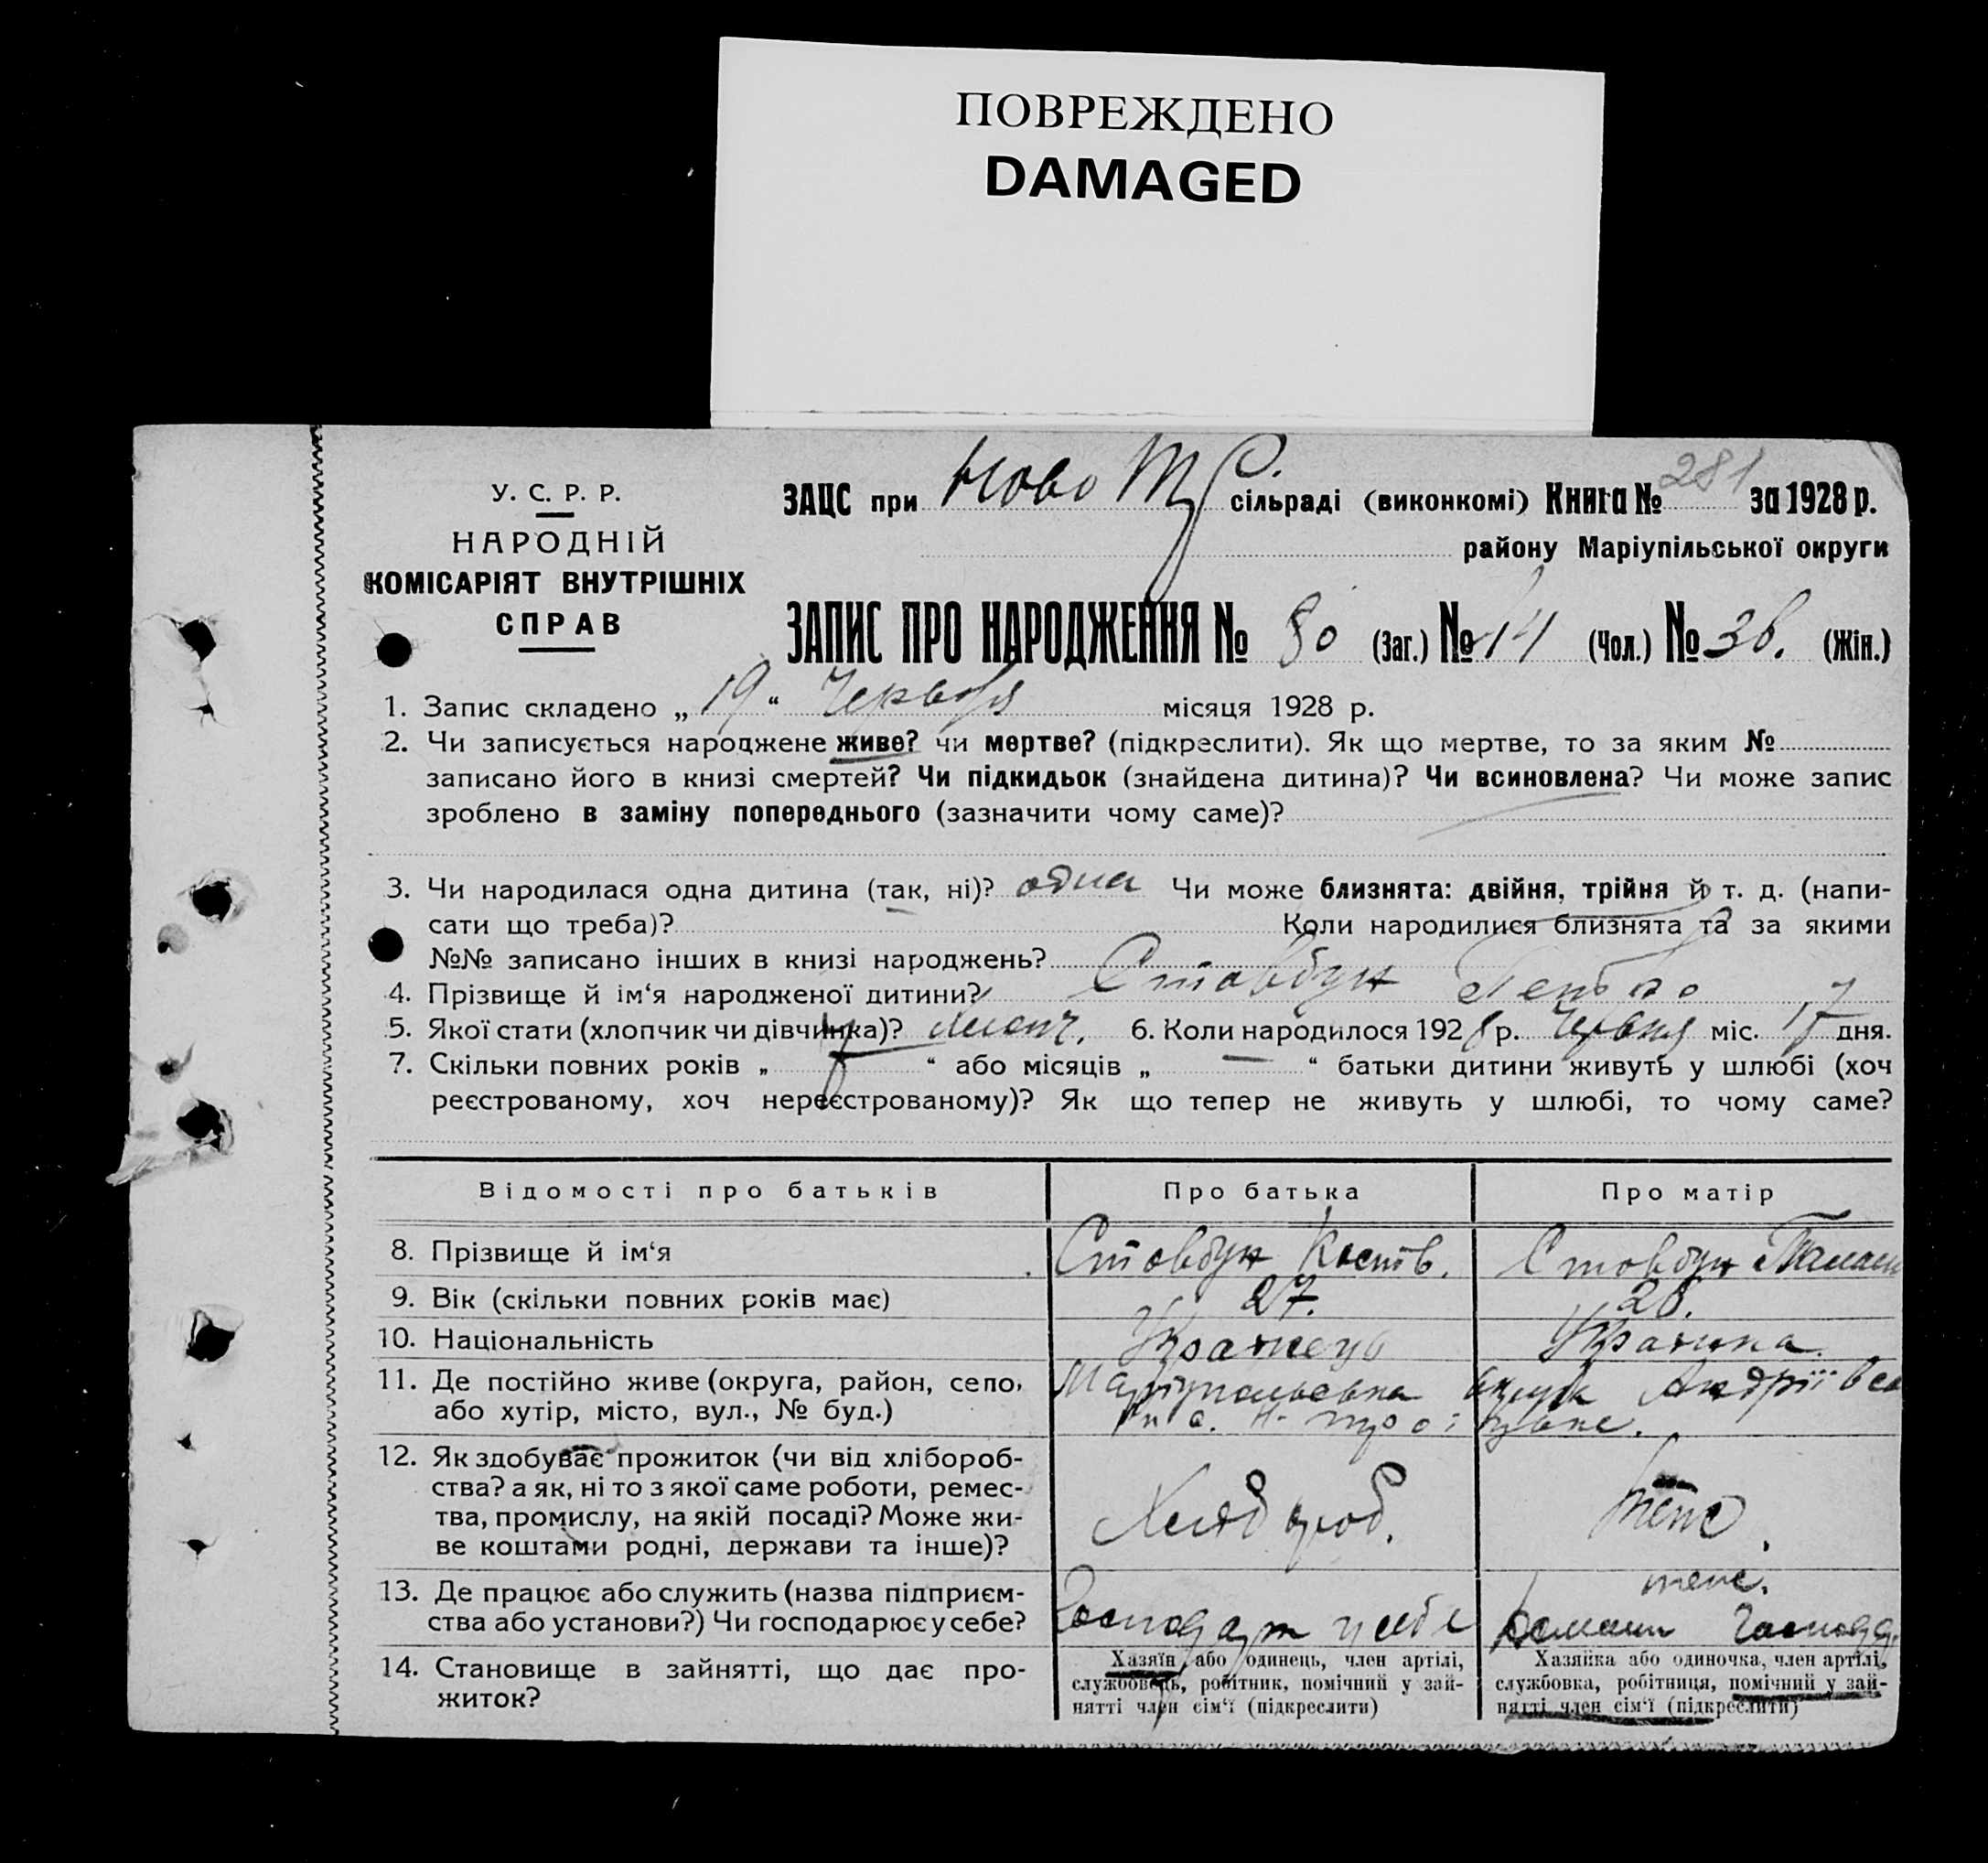 ПОВРЕЖДЕНО
DAMAGED
У. С. Р. Р.
НАРОДНІЙ
КОМІСАРІЯТ ВНУТРІШНІХ
СПРАВ
ЗАЦС при Ново Тр сільраді (виконкомі) Книга № 281 за 1928 р.
району Маріупільської округи
ЗАПИС ПРО НАРОДЖЕННЯ № 80 (Заг.) № 14 (Чол.) № 36. (Жін.)
1. Запис складено „ 19 “ Червня місяця 1928 р.
2. Чи записується народжене живе? чи мертве? (підкреслити). Як що мертве, то за яким №
записано його в книзі смертей? Чи підкидьок (знайдена дитина)? Чи всиновлена? Чи може запис
зроблено в заміну попереднього (зазначити чому саме)?
3. Чи народилася одна дитина (так, ні)? одна Чи може близнята: двійня, трійня й т. д. (напи-
сати що треба)? Коли народилися близнята та за якими
№№ записано інших в книзі народжень?
4. Прізвище й ім‘я народженої дитини? Стовбун
5. Якої стати (хлопчик чи дівчинка)? Хлопч. 6. Коли народилось 1928 р. Червня міс. 17 дня.
7. Скільки повних років „ 7 “ або місяців „ — “ батьки дитини живуть у шлюбі (хоч
реєстрованому, хоч нереєстрованому)? Як що тепер не живуть у шлюбі, то чому саме?
Відомості про батьків Про батька Про матір
8. Прізвище й ім‘я Стовбун Коств. Стовбун
9. Вік (скільки повних років має) 27. 28.
10. Національність Украінець Украінка
11. Де постійно живе (округа, район, село, Маріупольська округа Андріївсь
або хутір, місто, вул., № буд.) с. Н-Троїцьке.
12. Як здобуває прожиток (чи від хлібороб-
ства? а як, ні то з якої саме роботи, ремес-
тва, промислу, на якій посаді? Може жи- Хлібороб. теж
ве коштами родні, держави та інше)?
13. Де працює або служить (назва підприєм-
ства або установи?) Чи господарює у себе? Господар у себе Домашн Господ.
14. Становище в зайнятті, що дає про-
житок?
Хазяїн або одинець, член артілі,
службовець, робітник, помічний у зай-
нятті член сім‘ї (підкреслити)
Хазяйка або одиночка, член артілі,
службовка, робітниця, помічний у зай-
нятті член сім‘ї (підкреслити)